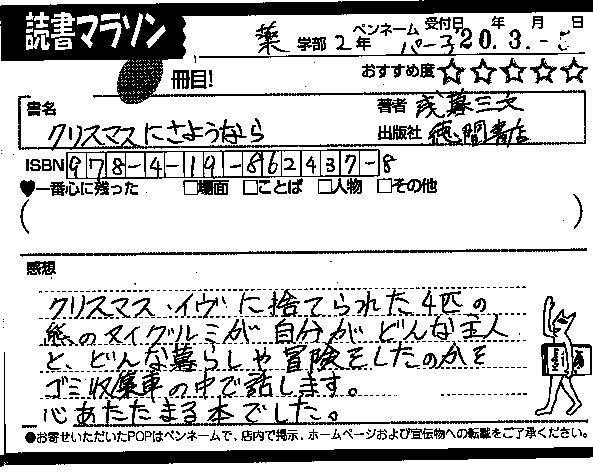 読書マラソン
薬 学部 2 年 ペンネーム パーヱ 受付日 20 年 3 月 5 日
冊目! おすすめ度 ☆☆☆☆☆
書名 クリスマスにさようなら
著者 浅暮三文
出版社 徳間書店
ISBN 978-4-19-862437-8
♥一番心に残った □場面 □ことば □人物 □その他
感想
クリスマス・イヴに捨てられた4匹の
熊のヌイグルミが自分がどんな主人
と、どんな暮らしや冒険をしたのかを
ゴミ収集車の中で話します。
心あたたまる本でした。
●お寄せいただいたPOPはペンネームで、店内で掲示、ホームページおよび宣伝物への転載をご了承ください。